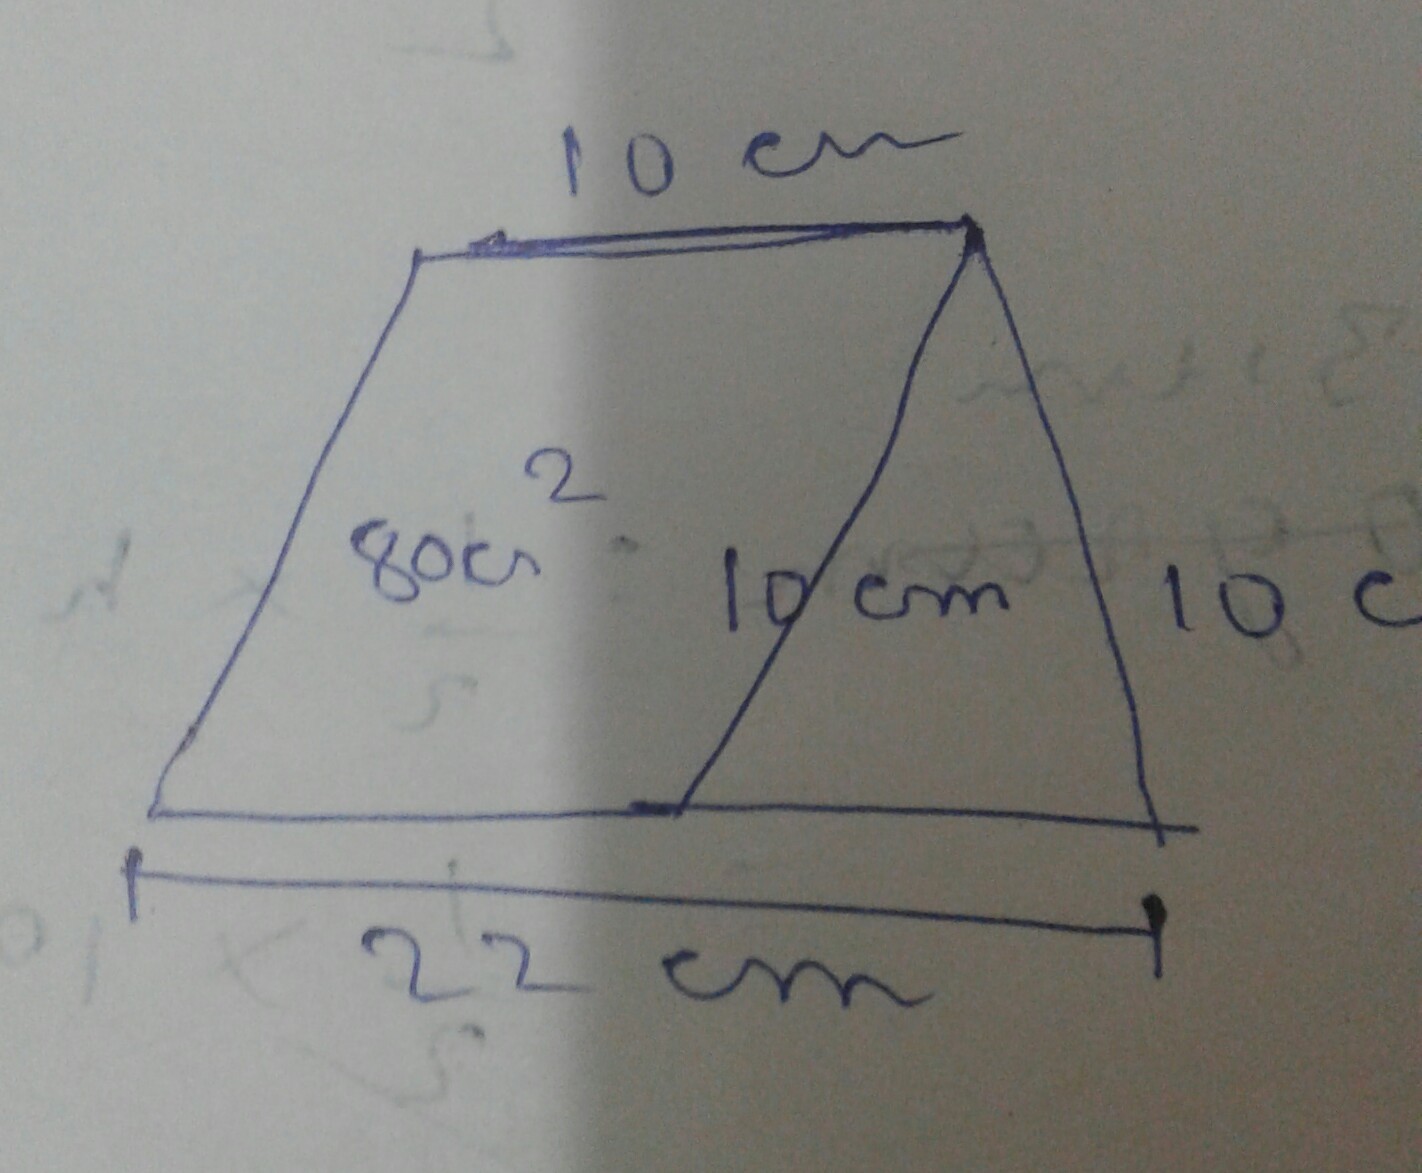 10 cm
2
80cm
10 cm 10 c
22 cm